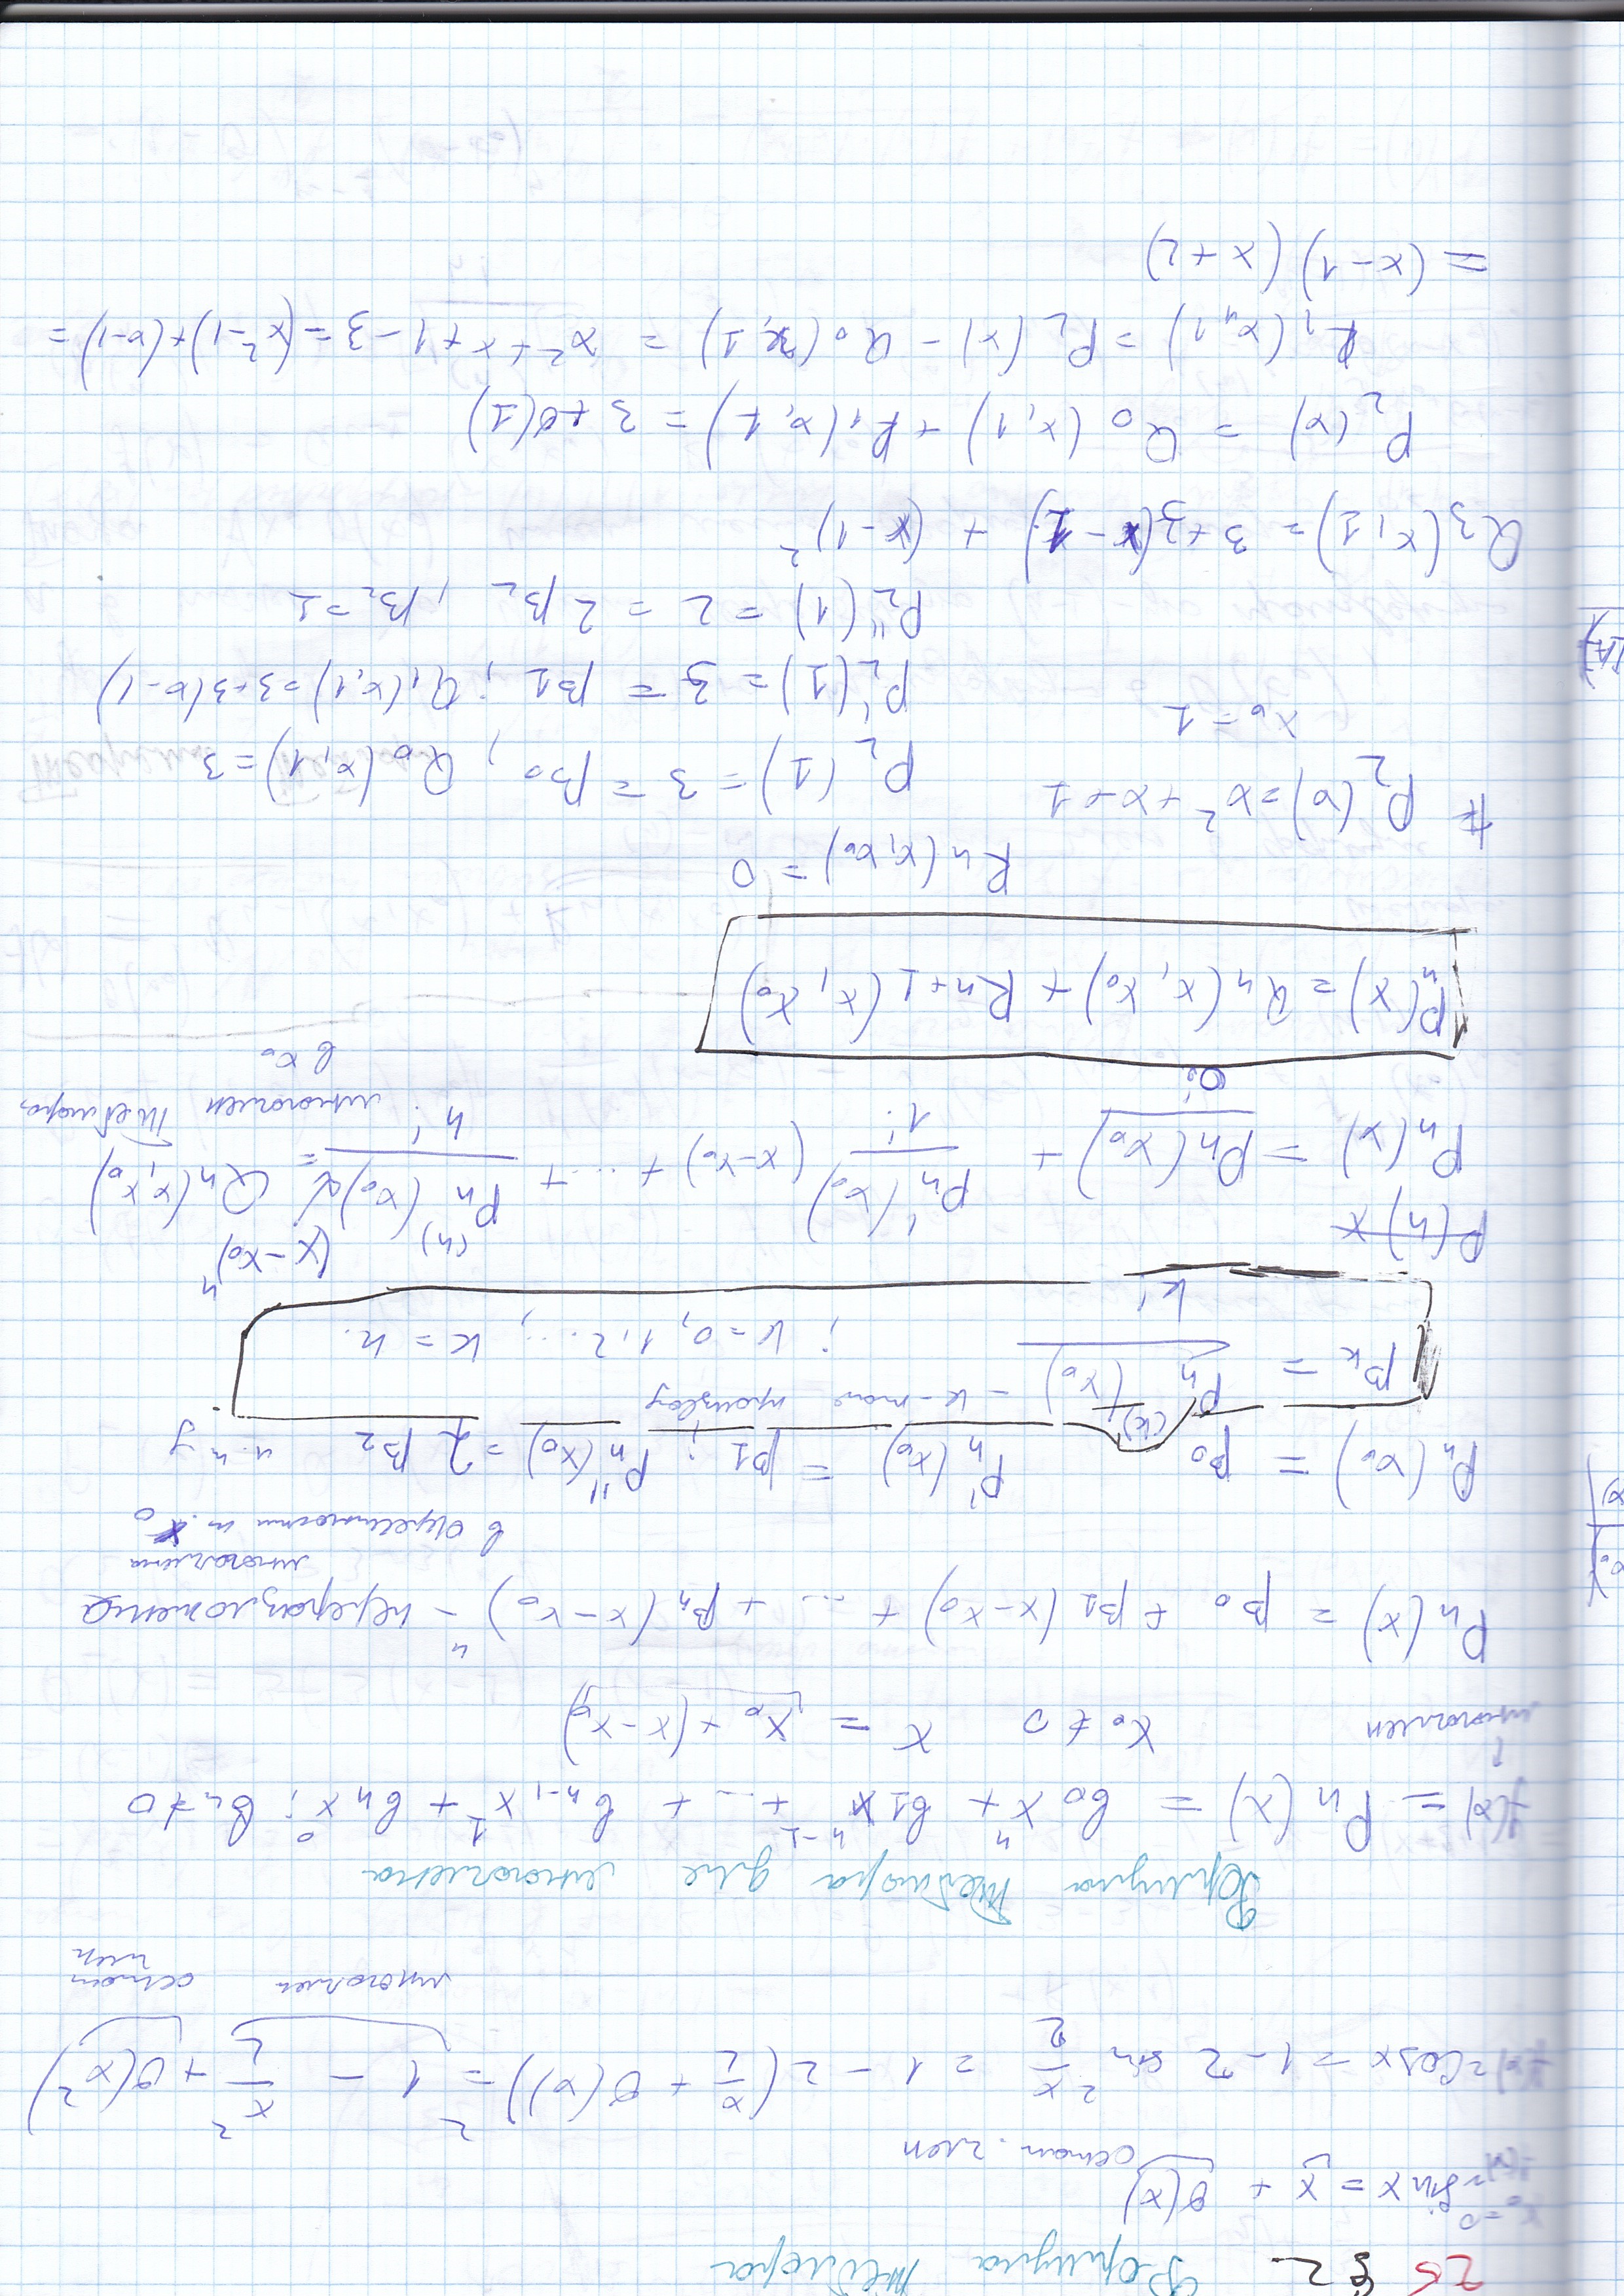 25 § 2. Формула Тейлора
x₀ = 0
f(x) = sin x = x + o(x)
остат. член
f(x) = cos x = 1 - 2 sin² x/2 = 1 - 2(x/2 + o(x))² = 1 - x²/2 + o(x²)
многочлен остат член
Формула Тейлора для многочлена
f(x) = Pₙ(x) = b₀xⁿ + b₁xⁿ⁻¹ + ... + bₙ₋₁x¹ + bₙx⁰; bₙ ≠ 0
↑
многочлен x₀ ≠ 0 x = x₀ + (x - x₀)
Pₙ(x) = β₀ + β₁(x-x₀) + ... + βₙ(x-x₀)ⁿ -
многочлена
в окрестности т. x₀
Pₙ(x₀) = β₀ Pₙ'(x₀) = β₁; Pₙ''(x₀) = 2β₂
βₖ = Pₙ⁽ᵏ⁾(x₀)/k! - k-тая производ; k = 0, 1, 2 ..., k = n.
P(n) x
Pₙ(x) = Pₙ(x₀)/0! + Pₙ'(x₀)/1! (x-x₀) + ... + Pₙ⁽ⁿ⁾(x₀)/n! (x-x₀)ⁿ = Qₙ(x, x₀)
многочлен Тейлора
в x₀
Pₙ(x) = Qₙ(x, x₀) + Rₙ₊₁(x, x₀)
Rₙ(x, x₀) = 0
# P₂(x) = x² + x + 1
P₂(1) = 3 = β₀, Q₀(x, 1) = 3
x₀ = 1
P₂'(1) = 3 = β₁; Q₁(x, 1) = 3+3(x-1)
P₂''(1) = 2 = 2β₂, β₂ = 1
Q₃(x, 1) = 3 + 3(x - 1) + (x - 1)²
P₂(x) = Q₀(x, 1) + R₁(x, 1) = 3 + o(1)
R₁(x, 1) = P₂(x) - Q₀(x, 1) = x² + x + 1 - 3 = (x² - 1) + (x - 1) =
= (x - 1)(x + 2)